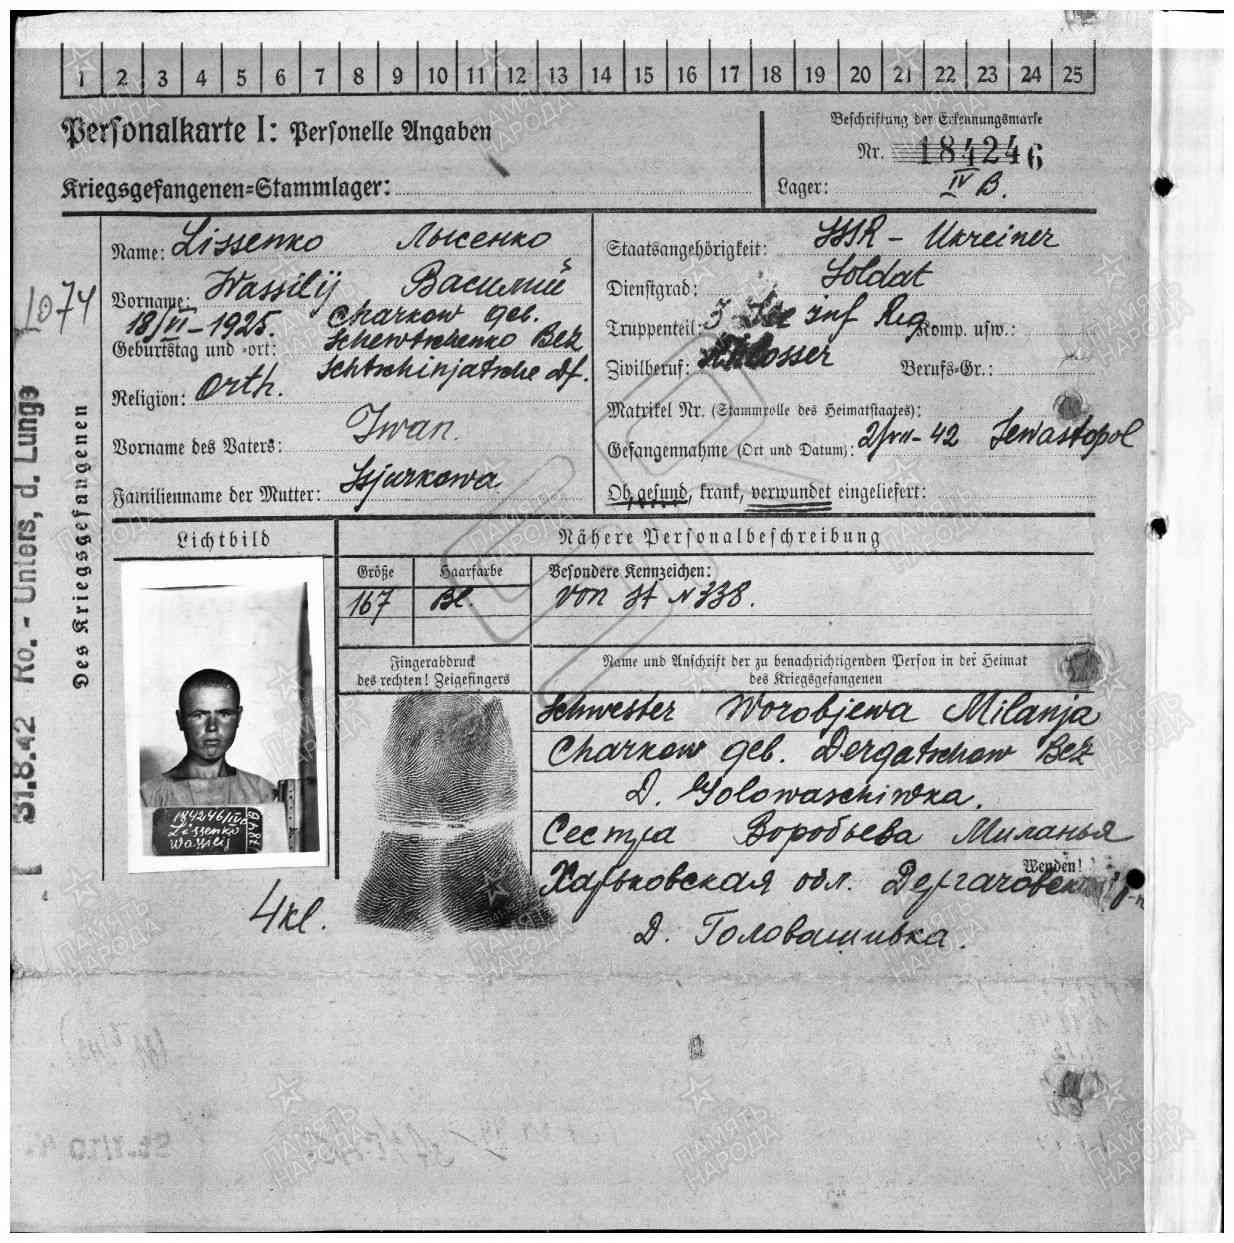 1 2 3 4 5 6 7 8 9 10 11 12 13 14 15 16 17 18 19 20 21 22 23 24 25
Personalkarte I: Personelle Angaben
Beschriftung der Erkennungsmarke
Nr. 184246
Kriegsgefangenen-Stammlager:
Lager: IV B.
Des Kriegsgefangenen
Name: Lissenko Лысенко
Vorname: Wassilij Василий
18/VI-1925. Charkow geb.
Geburtstag und -ort: Schewtschenko Bez
Schtschinjatsche Df.
Religion: Orth.
Vorname des Vaters: Iwan.
Familienname der Mutter: Ssjurkowa
Staatsangehörigkeit: SSSR - Ukreiner
Dienstgrad: Soldat
Truppenteil: 3 inf Reg Komp. usw.:
Zivilberuf: Schlosser Berufs-Gr.:
Matrikel Nr. (Stammrolle des Heimatstaates):
Gefangennahme (Ort und Datum): 2/VII-42 Sewastopol
Ob gesund, krank, verwundet eingeliefert:
Lichtbild
Nähere Personalbeschreibung
Größe Haarfarbe Besondere Kennzeichen:
167 Bl. von St N 338.
Fingerabdruck
des rechten! Zeigefingers
Name und Anschrift der zu benachrichtigenden Person in der Heimat
des Kriegsgefangenen
Schwester Worobjewa Milanja
Charkow geb. Dergatschow Bez
D. Golowaschiwka.
Сестра Воробьева Миланья
Wenden!
Харьковская обл. Дергачовский р-н
Д. Головашивка.
184246/IVB
Lissenko
Wassilij
4kl.
1074
31.8.42 Ro.- Unters. d. Lunge
ПАМЯТЬ
НАРОДА